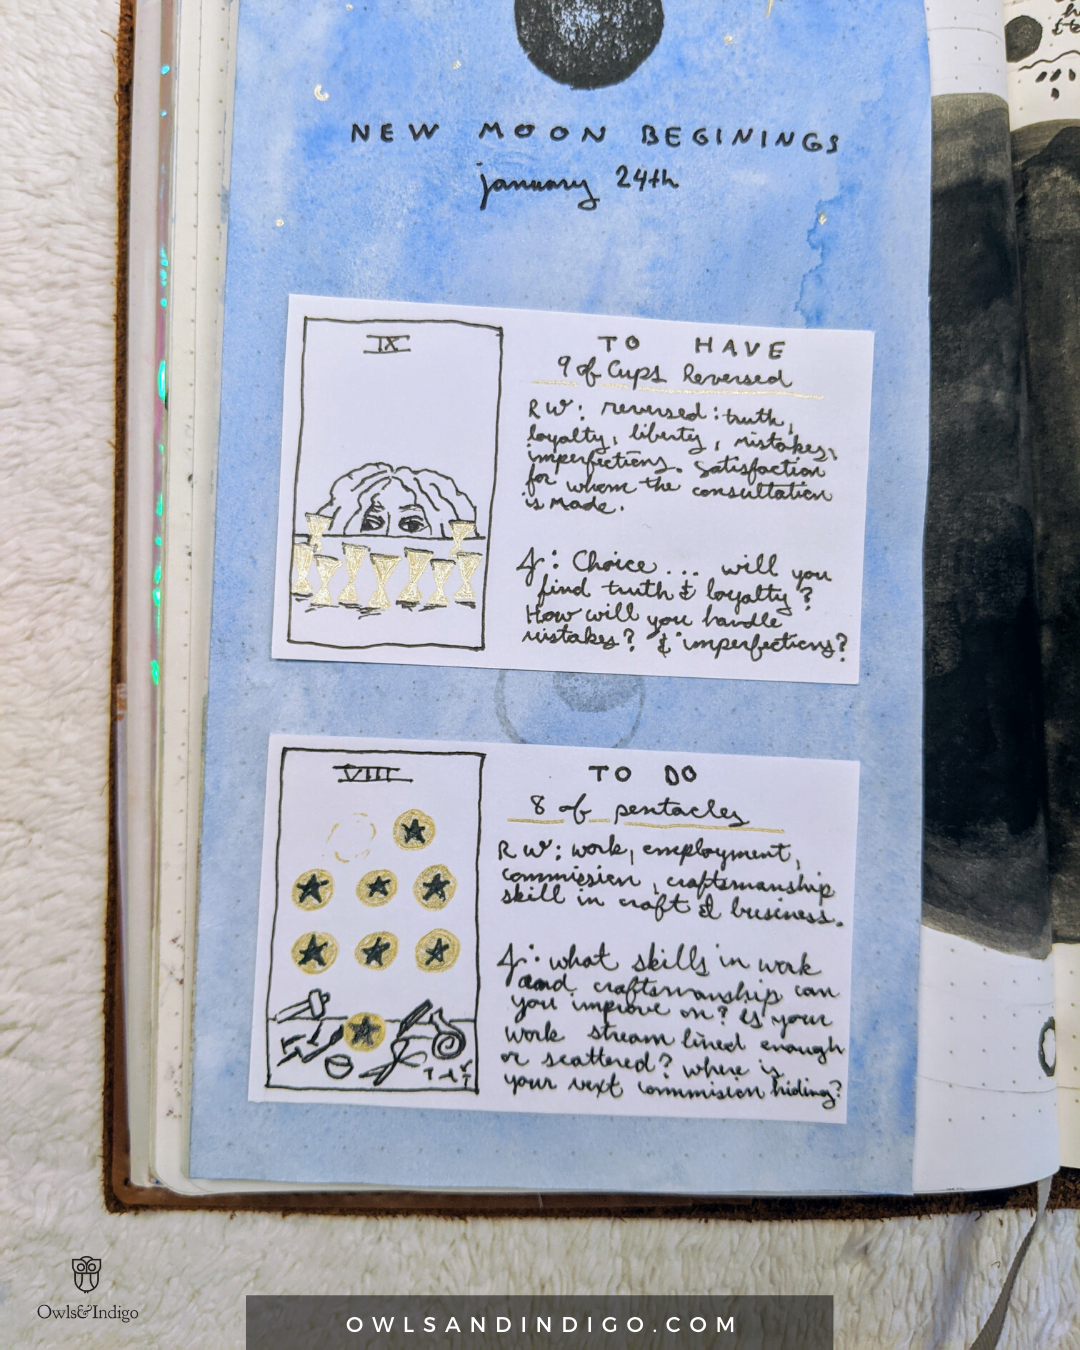 NEW MOON BEGININGS
january 24th
IX
TO HAVE
9 of Cups Reversed
RW: reversed: truth,
loyalty, liberty, mistakes,
imperfections. Satisfaction
for whom the consultation
is made.
J: Choice... will you
find truth & loyalty?
How will you handle
mistakes? & imperfections?
VIII
TO DO
8 of pentacles
RW: work, employment,
commission, craftsmanship
skill in craft & business.
J: what skills in work
and craftsmanship can
you improve on? Is your
work stream lined enough
or scattered? where is
your next commision hiding?
Owls&Indigo
OWLSANDINDIGO.COM